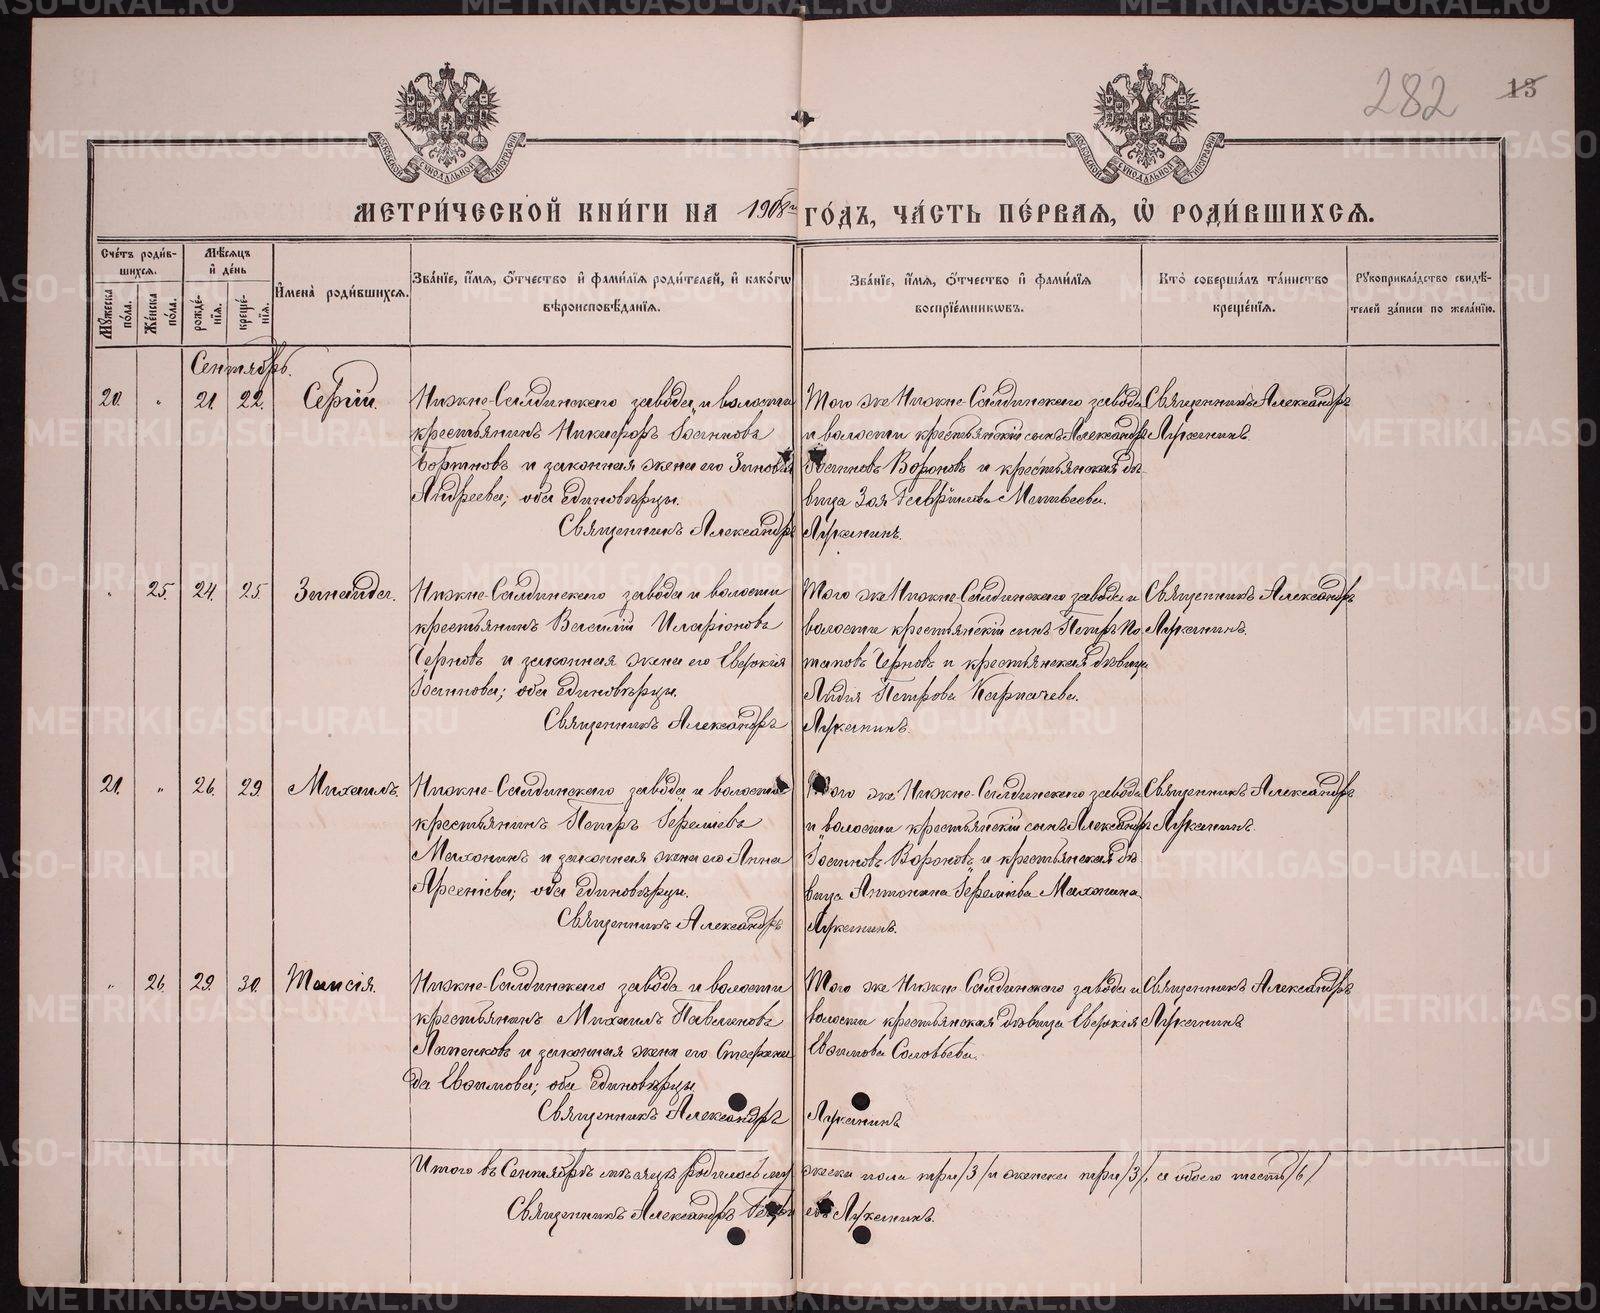 282 13
МОСКОВСКОЙ СѴНОДАЛЬНОЙ ТИПОГРАФІИ
МОСКОВСКОЙ СѴНОДАЛЬНОЙ ТИПОГРАФІИ
МЕТРИ́ЧЕСКОЙ КНИ́ГИ НА 1908й ГО́ДЪ, ЧА́СТЬ ПЕ́РВАЯ, Ѡ҆ РОДИ́ВШИХСЯ.
Сче́тъ роди́в-
шихся.
Мѣ́сяцъ
и҆ де́нь
Мꙋ́жеска по́ла.
Же́нска по́ла.
рожде́-
нїѧ.
креще́-
нїѧ.
И҆мена̀ роди́вшихсѧ.
Зва́нїе, и҆́мѧ, ѻ҆́тчество и҆ фами́лїѧ роди́телей, и҆ како́гѡ
вѣроисповѣ́данїѧ.
Зва́нїе, и҆́мѧ, ѻ҆́тчество и҆ фами́лїѧ
воспрїе́мникѡвъ.
Кто̀ соверша́лъ та́инство
креще́нїѧ.
Рꙋкоприкла́дство свидѣ́-
телей за́писи по жела́нїю.
Сентябрь.
20. " 21. 22. Сергій. Нижне-Салдинскаго завода и волости
крестьянинъ Никифоръ Іоаннова
и законная жена его Зиновія
Андреева; оба единовѣрцы.
Священникъ Александръ Луканинъ.
Того же Нижне-Салдинскаго завода
и волости крестьянскій сынъ Александръ
Іоанновъ Вороновъ и крестьянская дѣ-
вица Зоя Гавріилова Матвеева.
Священникъ Александръ
Луканинъ.
" 25. 24. 25 Зинаида. Нижне-Салдинскаго завода и волости
крестьянинъ Василій Иларіонова
Черновъ и законная жена его Евдокія
Іоаннова; оба единовѣрцы.
Священникъ Александръ Луканинъ.
Того же Нижне-Салдинскаго завода и
волости крестьянскій сынъ Петръ По-
таповъ Черновъ и крестьянская дѣвица
Лидія Петрова Карпачева.
Священникъ Александръ
Луканинъ.
21. " 26. 29. Михаилъ. Нижне-Салдинскаго завода и волости
крестьянинъ Петръ Іереміева
Махонинъ и законная жена его Анна
Арсеніева; оба единовѣрцы.
Священникъ Александръ Луканинъ.
Того же Нижне-Салдинскаго завода
и волости крестьянскій сынъ Александръ
Іоанновъ Вороновъ и крестьянская дѣ-
вица Антонина Іереміева Махонина.
Священникъ Александръ
Луканинъ.
" 26. 29. 30. Таисія. Нижне-Салдинскаго завода и волости
крестьянинъ Михаилъ Павлинова
и законная жена его Стефани-
да Евѳимова; оба единовѣрцы.
Священникъ Александръ Луканинъ
Того же Нижне-Салдинскаго завода и
волости крестьянская дѣвица Евдокія
Евѳимова Соловьева.
Священникъ Александръ
Луканинъ
Итого въ Сентябрѣ мѣсяцѣ родилось мужеска пола три /3/ и женска три /3/, а обоего шесть /6/
Священникъ Александръ Луканинъ.
METRIKI.GASO-URAL.RU